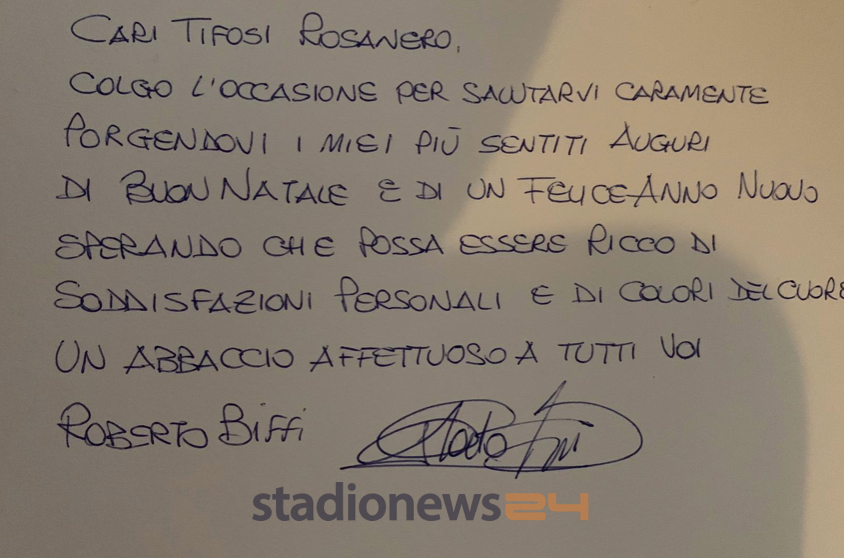 CARI TIFOSI ROSANERO,
COLGO L'OCCASIONE PER SALUTARVI CARAMENTE
PORGENDOVI I MIEI PIÙ SENTITI AUGURI
DI BUON NATALE E DI UN FELICE ANNO NUOVO
SPERANDO CHE POSSA ESSERE RICCO DI
SODDISFAZIONI PERSONALI E DI COLORI DEL CUORE
UN ABBACCIO AFFETTUOSO A TUTTI VOI
ROBERTO BIFFI
stadionews24